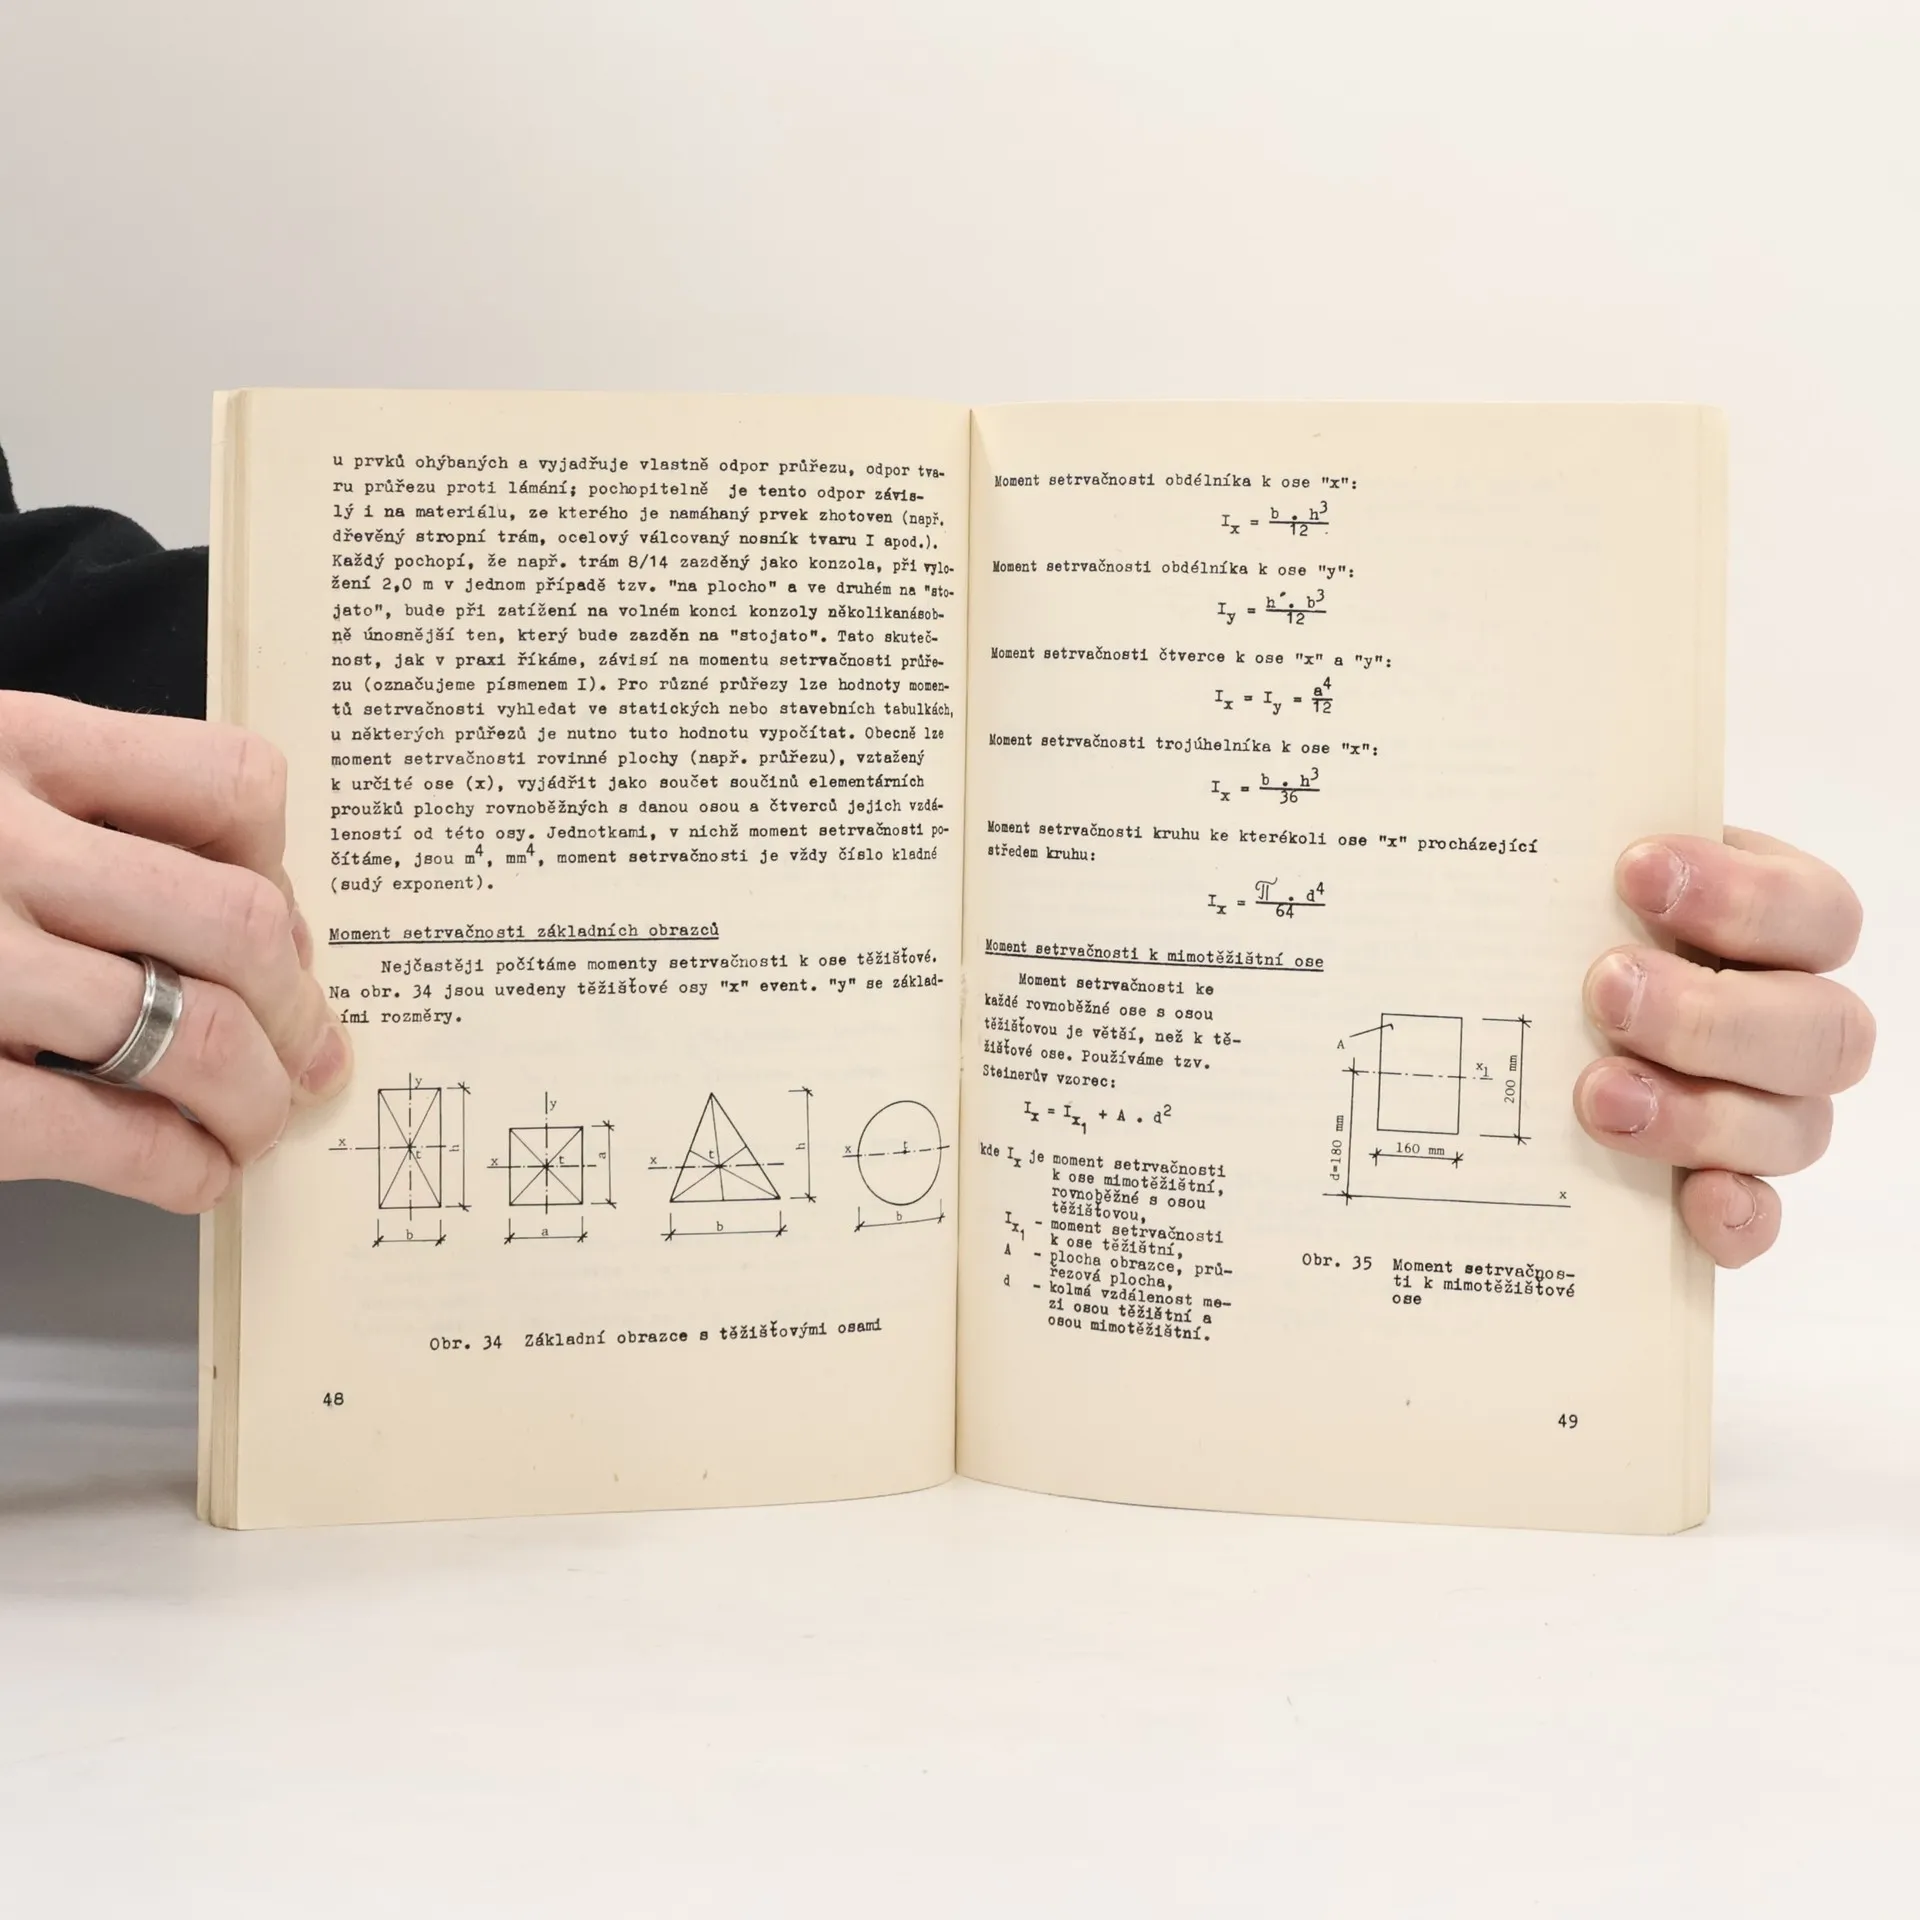 u prvků ohýbaných a vyjadřuje vlastně odpor průřezu, odpor tva-
ru průřezu proti lámání; pochopitelně je tento odpor závis-
lý i na materiálu, ze kterého je namáhaný prvek zhotoven (např.
dřevěný stropní trám, ocelový válcovaný nosník tvaru I apod.).
Každý pochopí, že např. trám 8/14 zazděný jako konzola, při vylo-
žení 2,0 m v jednom případě tzv. "na plocho" a ve druhém na "sto-
jato", bude při zatížení na volném konci konzoly několikanásob-
ně únosnější ten, který bude zazděn na "stojato". Tato skuteč-
nost, jak v praxi říkáme, závisí na momentu setrvačnosti průře-
zu (označujeme písmenem I). Pro různé průřezy lze hodnoty momen-
tů setrvačnosti vyhledat ve statických nebo stavebních tabulkách,
u některých průřezů je nutno tuto hodnotu vypočítat. Obecně lze
moment setrvačnosti rovinné plochy (např. průřezu), vztažený
k určité ose (x), vyjádřit jako součet součinů elementárních
proužků plochy rovnoběžných s danou osou a čtverců jejich vzdá-
leností od této osy. Jednotkami, v nichž moment setrvačnosti po-
čítáme, jsou m⁴, mm⁴, moment setrvačnosti je vždy číslo kladné
(sudý exponent).
Moment setrvačnosti základních obrazců
Nejčastěji počítáme momenty setrvačnosti k ose těžišťové.
Na obr. 34 jsou uvedeny těžišťové osy "x" event. "y" se základ-
ími rozměry.
y
x
t
h
b
y
x
t
a
a
x
t
h
b
x
t
b
Obr. 34 Základní obrazce s těžišťovými osami
48
Moment setrvačnosti obdélníka k ose "x":
Iₓ = b . h³ / 12
Moment setrvačnosti obdélníka k ose "y":
I_y = h . b³ / 12
Moment setrvačnosti čtverce k ose "x" a "y":
Iₓ = I_y = a⁴ / 12
Moment setrvačnosti trojúhelníka k ose "x":
Iₓ = b . h³ / 36
Moment setrvačnosti kruhu ke kterékoli ose "x" procházející
středem kruhu:
Iₓ = π . d⁴ / 64
Moment setrvačnosti k mimotěžištní ose
Moment setrvačnosti ke
každé rovnoběžné ose s osou
těžišťovou je větší, než k tě-
žišťové ose. Používáme tzv.
Steinerův vzorec:
Iₓ = Iₓ₁ + A . d²
kde Iₓ je moment setrvačnosti
k ose mimotěžištní,
rovnoběžné s osou
těžišťovou,
Iₓ₁ - moment setrvačnosti
k ose těžištní,
A - plocha obrazce, prů-
řezová plocha,
d - kolmá vzdálenost me-
zi osou těžištní a
osou mimotěžištní.
A
x₁
200 mm
160 mm
d=180 mm
x
Obr. 35 Moment setrvačnos-
ti k mimotěžišťové
ose
49